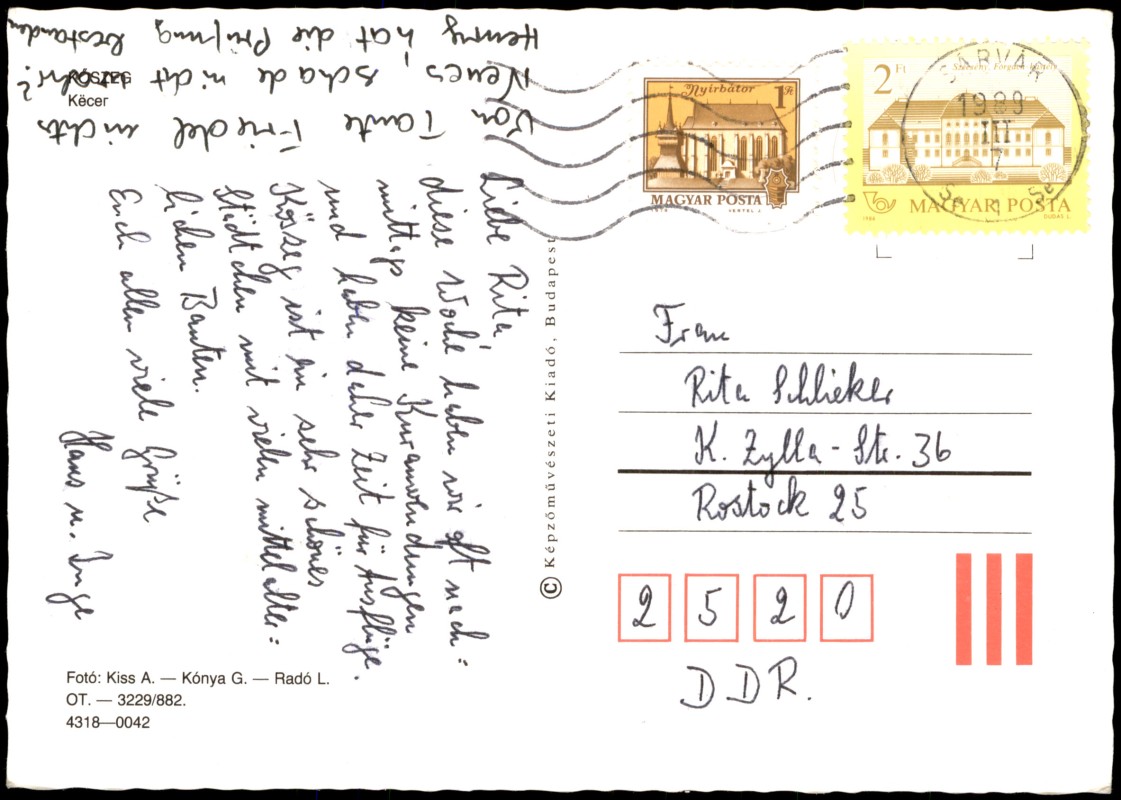 KŐSZEG
Këcer
Liebe Rita,
diese Woche haben wir oft nach=
mittags keine Kuranwendungen
und haben daher Zeit für Ausflüge.
Kőszeg ist ein sehr schönes
Städtchen mit vielen mittelalter=
lichen Bauten.
Euch allen viele Grüße
Hans u. Inge
Von Tante Friedel nichts
Neues, schade nicht wahr?
Henry hat die Prüfung bestanden
Fotó: Kiss A. — Kónya G. — Radó L.
OT. — 3229/882.
4318—0042
© Képzőművészeti Kiadó, Budapest
Nyírbátor
1 Ft
MAGYAR POSTA
2 Ft
MAGYAR POSTA
1986
DUDÁS L.
SÁRVÁR
1989
III
7
Frau
Rita Schlieker
K. Zylla-Str. 36
Rostock 25
2520
DDR.